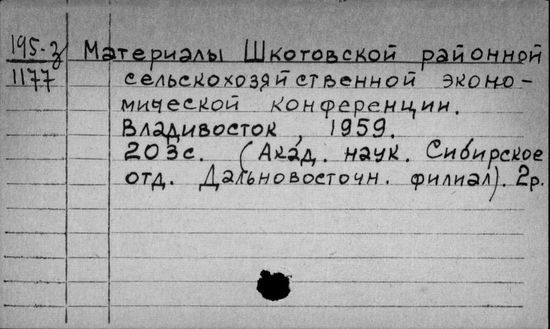 195-з Материалы Шкотовской районной
1177 сельскохозяйственной эконо-
мической конференции.
Владивосток, 1959.
203с. (Акад. наук. Сибирское
отд. Дальновосточн. филиал). 2р.